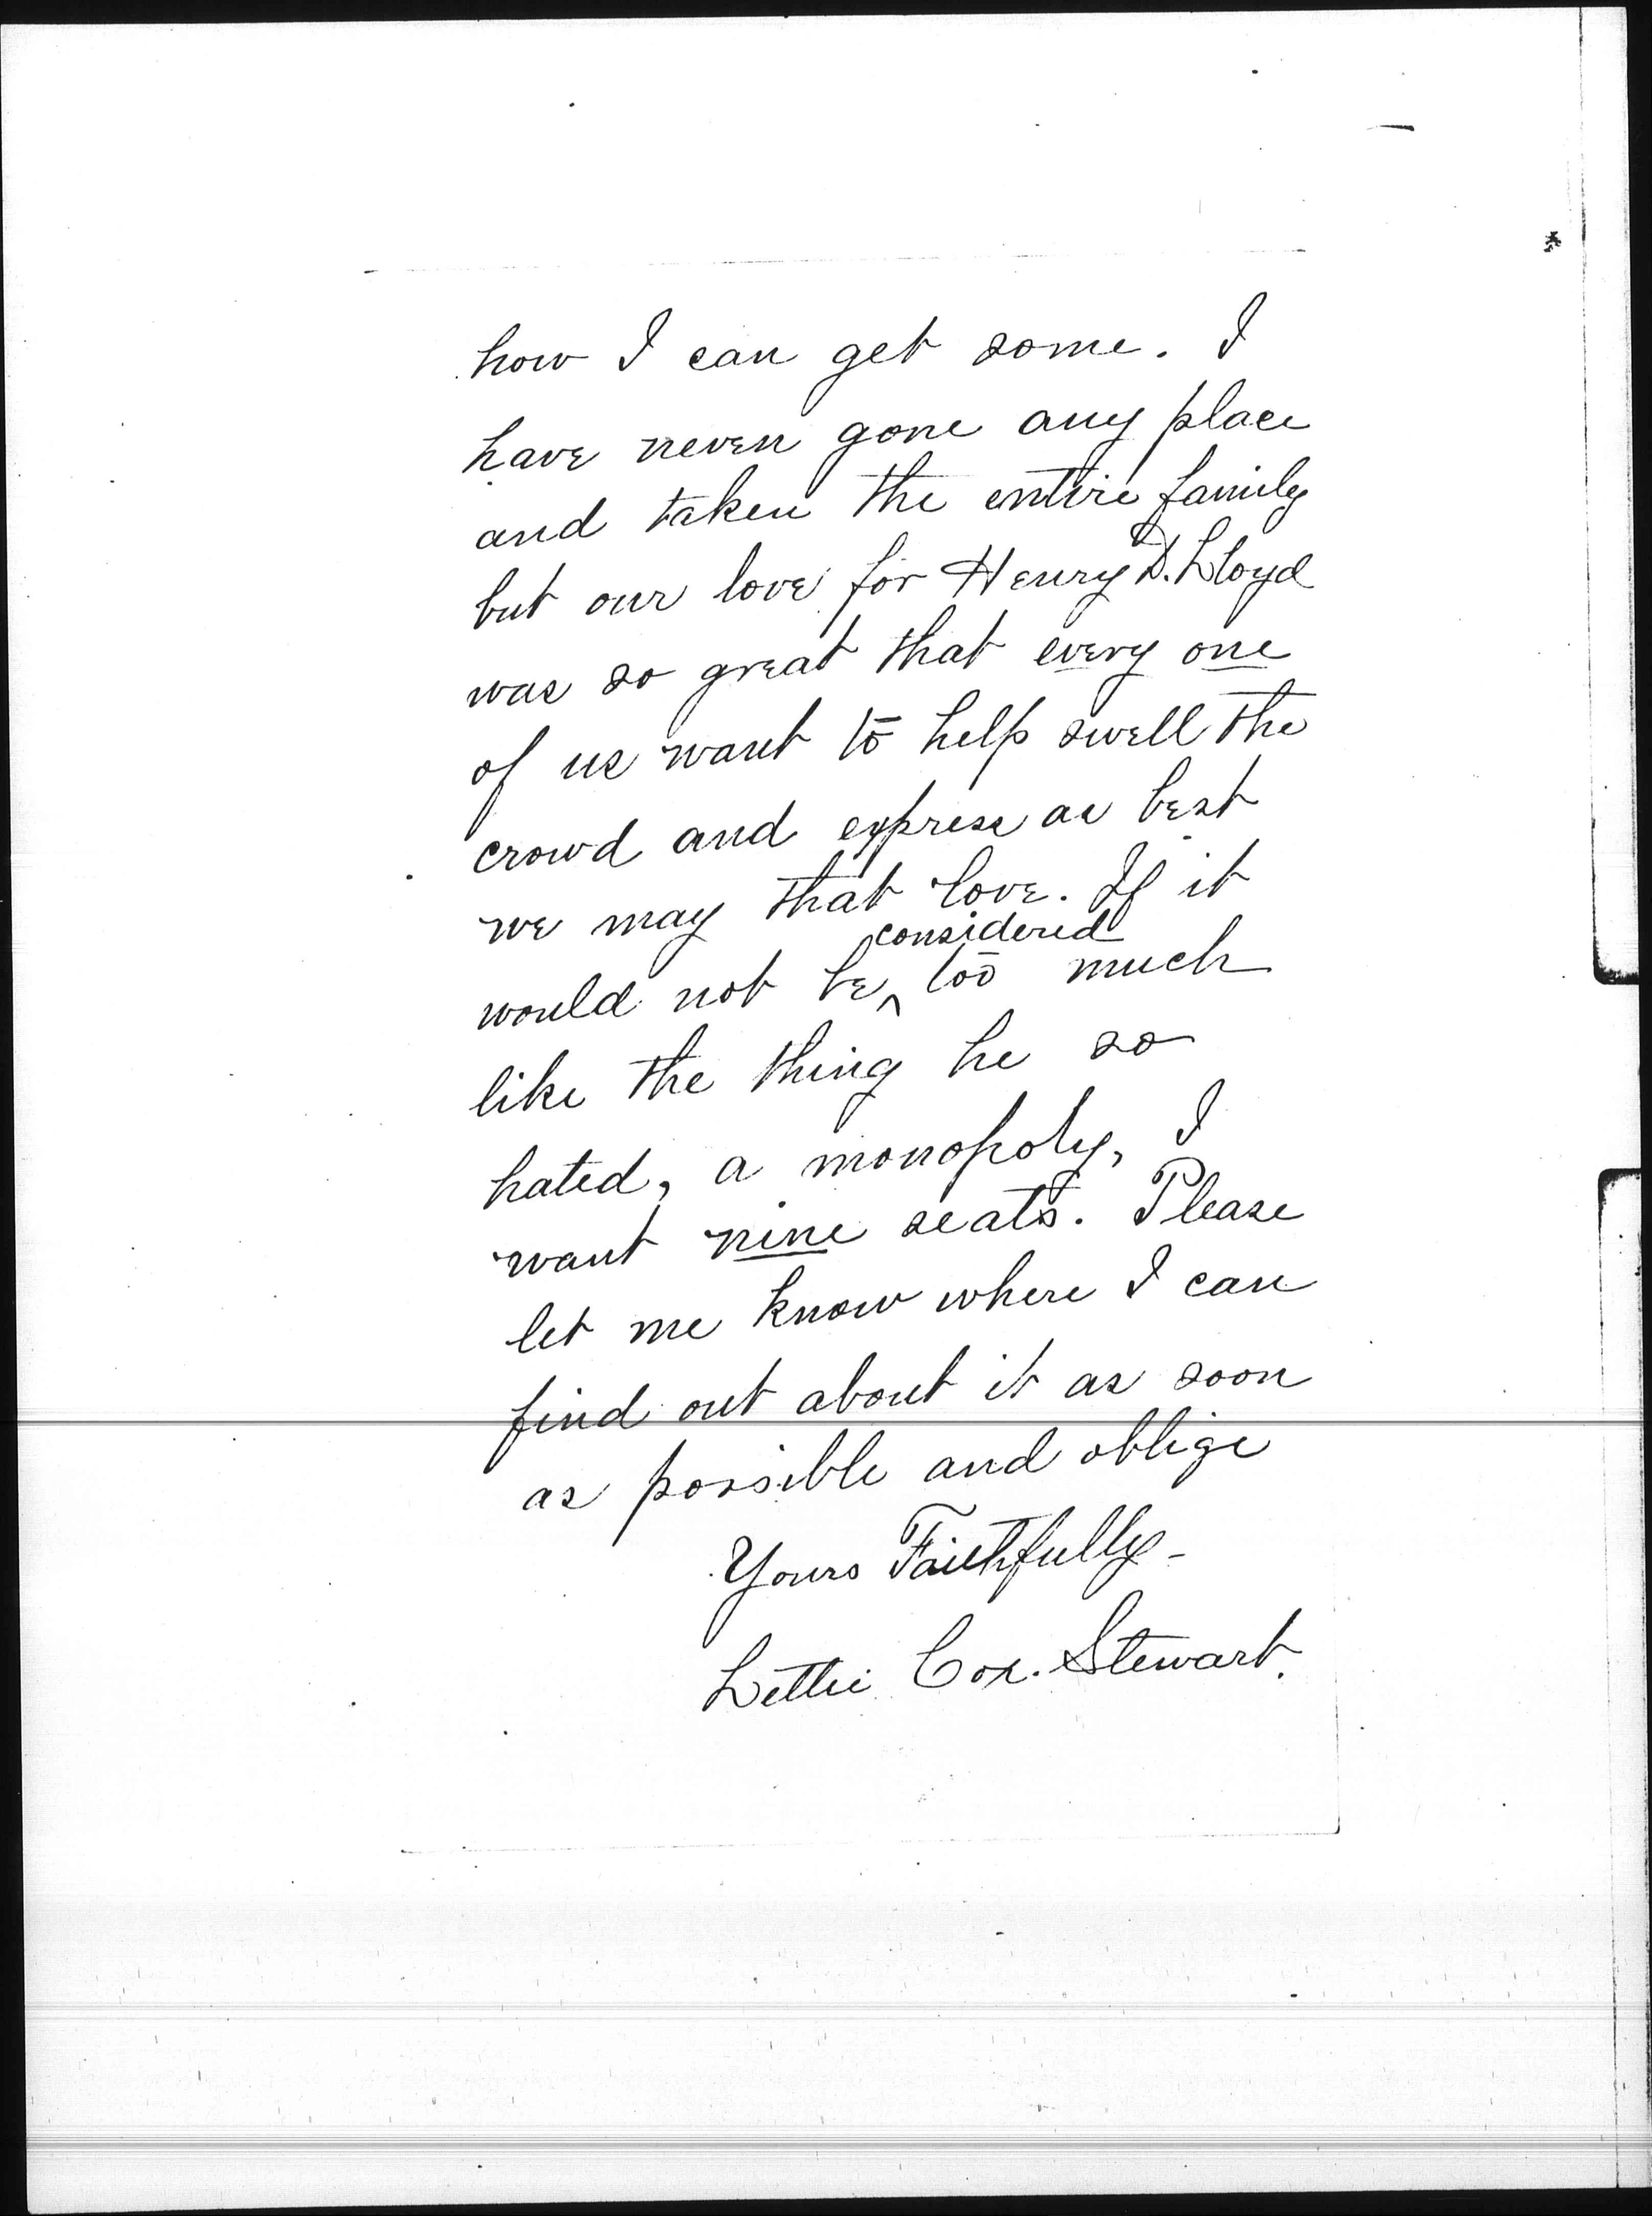 how I can get some. I
have never gone any place
and taken the entire family
but our love for Henry D. Lloyd
was so great that every one
of us want to help swell the
crowd and express as best
we may that love. If it
considered
would not be ^ too much
like the thing he so
hated, a monopoly, I
want nine seats. Please
let me know where I can
find out about it as soon
as possible and oblige
Yours Faithfully -
Lettie Cox. Stewart.